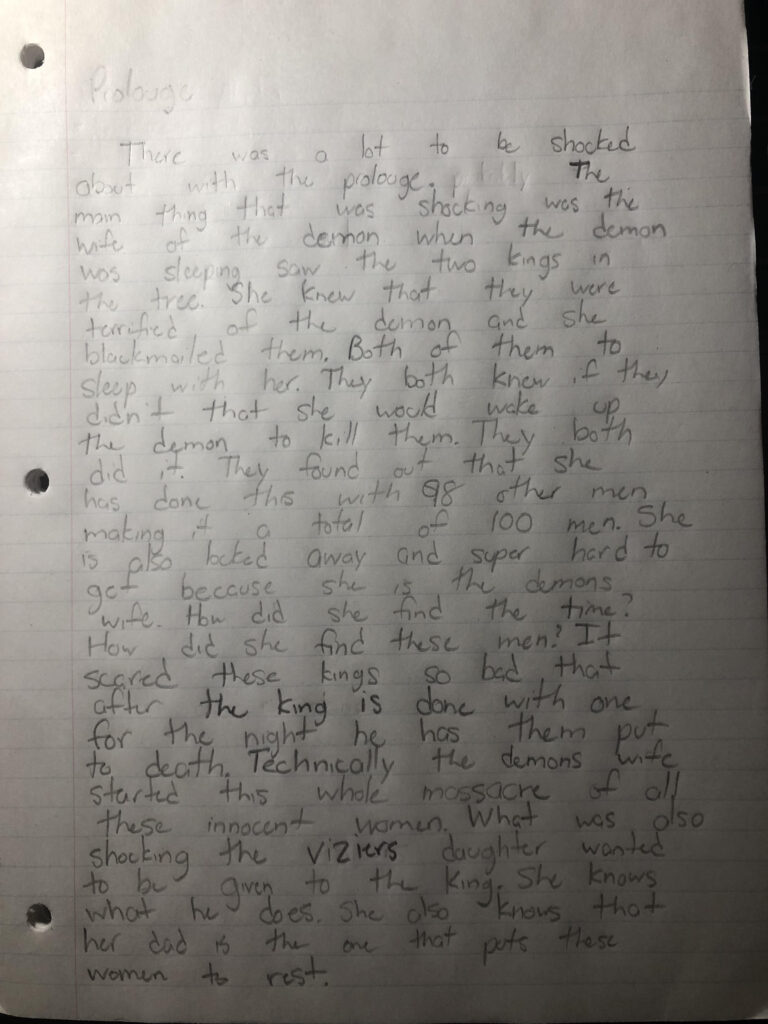 Prolouge
There was a lot to be shocked
about with the prolouge. The
main thing that was shocking was the
wife of the demon when the demon
was sleeping saw the two kings in
the tree. She knew that they were
terrified of the demon and she
blackmailed them. Both of them to
sleep with her. They both knew if they
didn't that she would wake up
the demon to kill them. They both
did it. They found out that she
has done this with 98 other men
making it a total of 100 men. She
is also locked away and super hard to
get because she is the demons
wife. How did she find the time?
How did she find these men? It
scared these kings so bad that
after the king is done with one
for the night he has them put
to death. Technically the demons wife
started this whole massacre of all
these innocent women. What was also
shocking the viziers daughter wanted
to be given to the king. She knows
what he does. She also knows that
her dad is the one that puts these
women to rest.